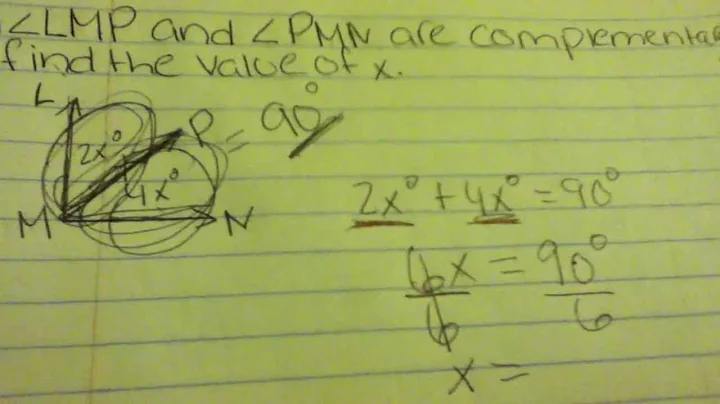 ∠LMP and ∠PMN are complementa
find the value of x.
L
2x° P = 90°
4x°
M N
2x° + 4x° = 90°
6x = 90°
6 6
x =